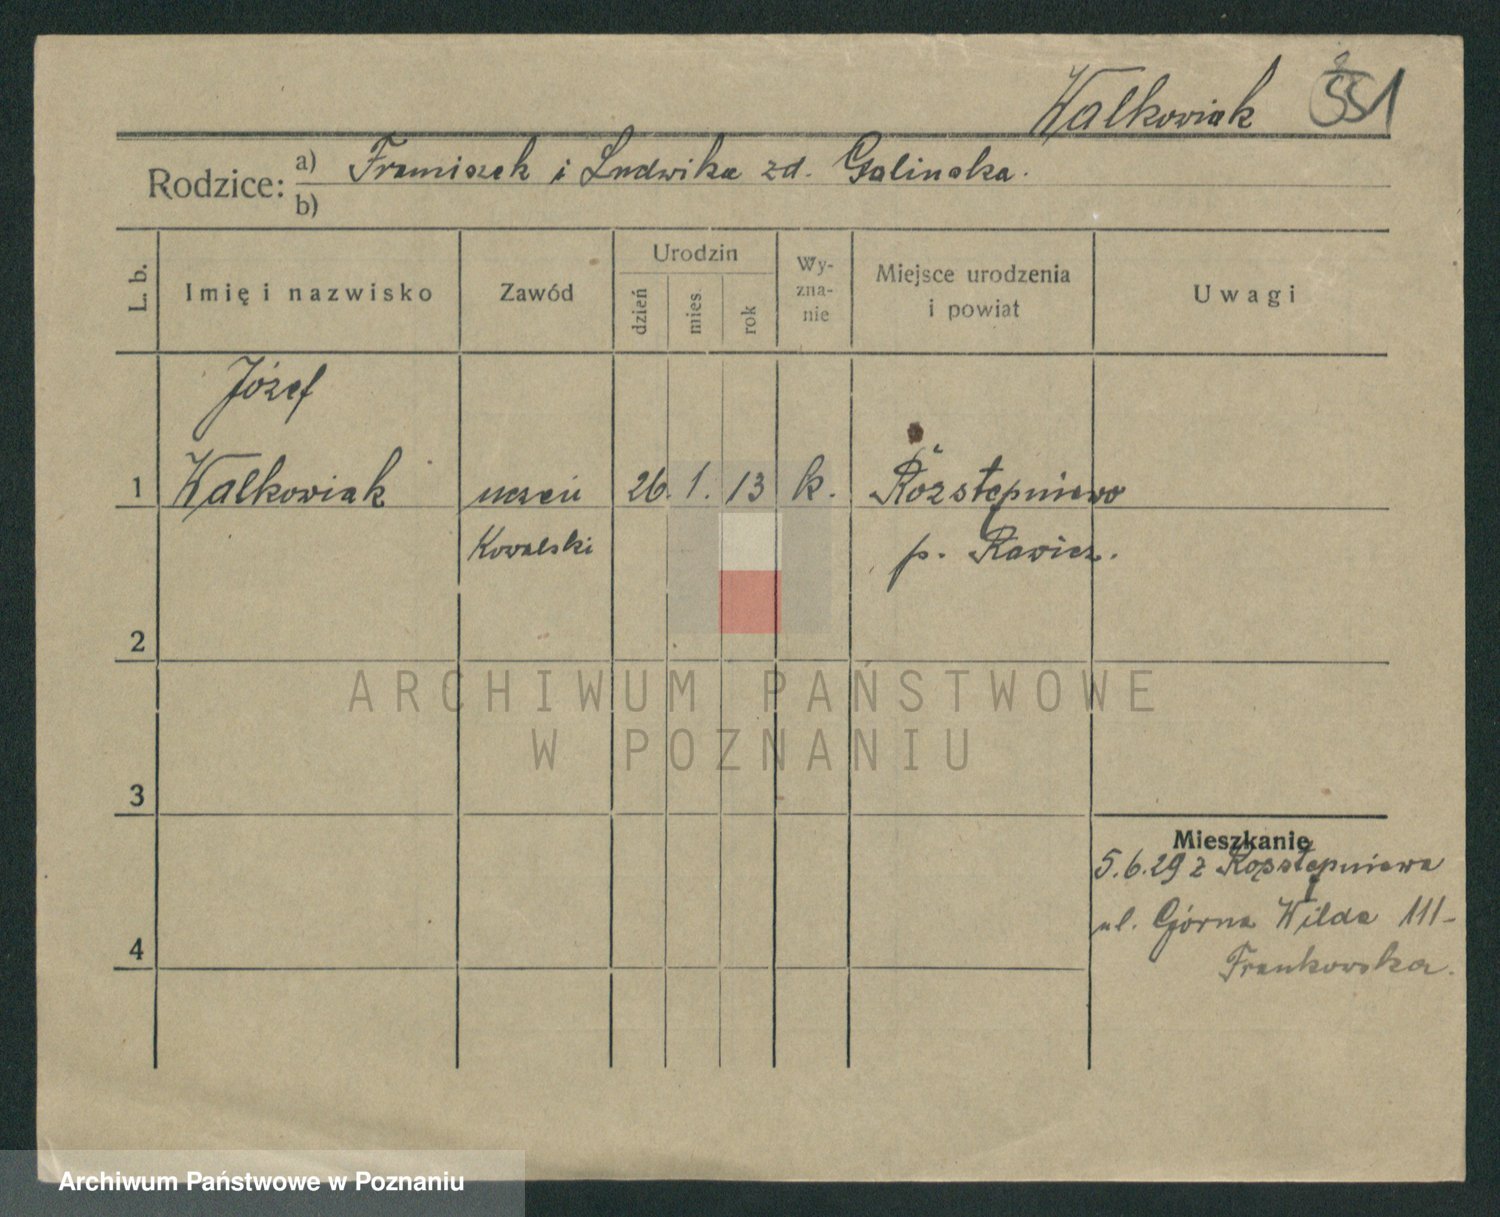 Walkowiak 551
Rodzice: a) Franciszek i Ludwika zd. Galinska.
b)
L. b.
Imię i nazwisko
Zawód
Urodzin
dzień
mies.
rok
Wy-
zna-
nie
Miejsce urodzenia
i powiat
Uwagi
Józef
1 Walkowiak uczeń 26. 1. 13 k. Rozstępniewo
Kowalski p. Rawicz.
2
ARCHIWUM PAŃSTWOWE
W POZNANIU
3
Mieszkanie
5.6.29 z Rozstępniewa
ul. Górna Wilda 111-
4
Frankowska.
Archiwum Państwowe w Poznaniu